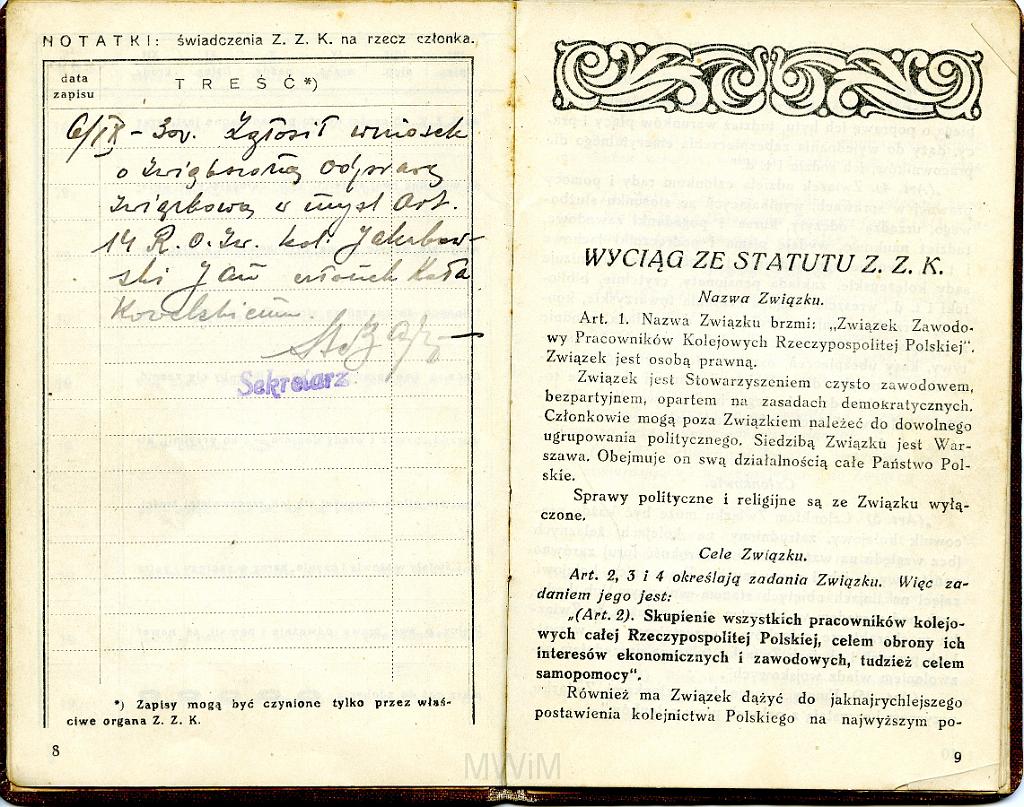 NOTATKI: świadczenia Z. Z. K. na rzecz członka.
data
zapisu
TREŚĆ*)
6/IX - 30r. Zgłosił wniosek
o związkową odprawę
związkową w myśl Art.
14 R. O. Zw. kol. Jakubow-
ski Jan członek Koła
Sekretarz
*) Zapisy mogą być czynione tylko przez właś-
ciwe organa Z. Z. K.
8
WYCIĄG ZE STATUTU Z. Z. K.
Nazwa Związku.
Art. 1. Nazwa Związku brzmi: „Związek Zawodo-
wy Pracowników Kolejowych Rzeczypospolitej Polskiej".
Związek jest osobą prawną.
Związek jest Stowarzyszeniem czysto zawodowem,
bezpartyjnem, opartem na zasadach demokratycznych.
Członkowie mogą poza Związkiem należeć do dowolnego
ugrupowania politycznego. Siedzibą Związku jest War-
szawa. Obejmuje on swą działalnością całe Państwo Pol-
skie.
Sprawy polityczne i religijne są ze Związku wyłą-
czone.
Cele Związku.
Art. 2, 3 i 4 określają zadania Związku. Więc za-
daniem jego jest:
„(Art. 2). Skupienie wszystkich pracowników kolejo-
wych całej Rzeczypospolitej Polskiej, celem obrony ich
interesów ekonomicznych i zawodowych, tudzież celem
samopomocy".
Również ma Związek dążyć do jaknajrychlejszego
postawienia kolejnictwa Polskiego na najwyższym po-
9
MWiM